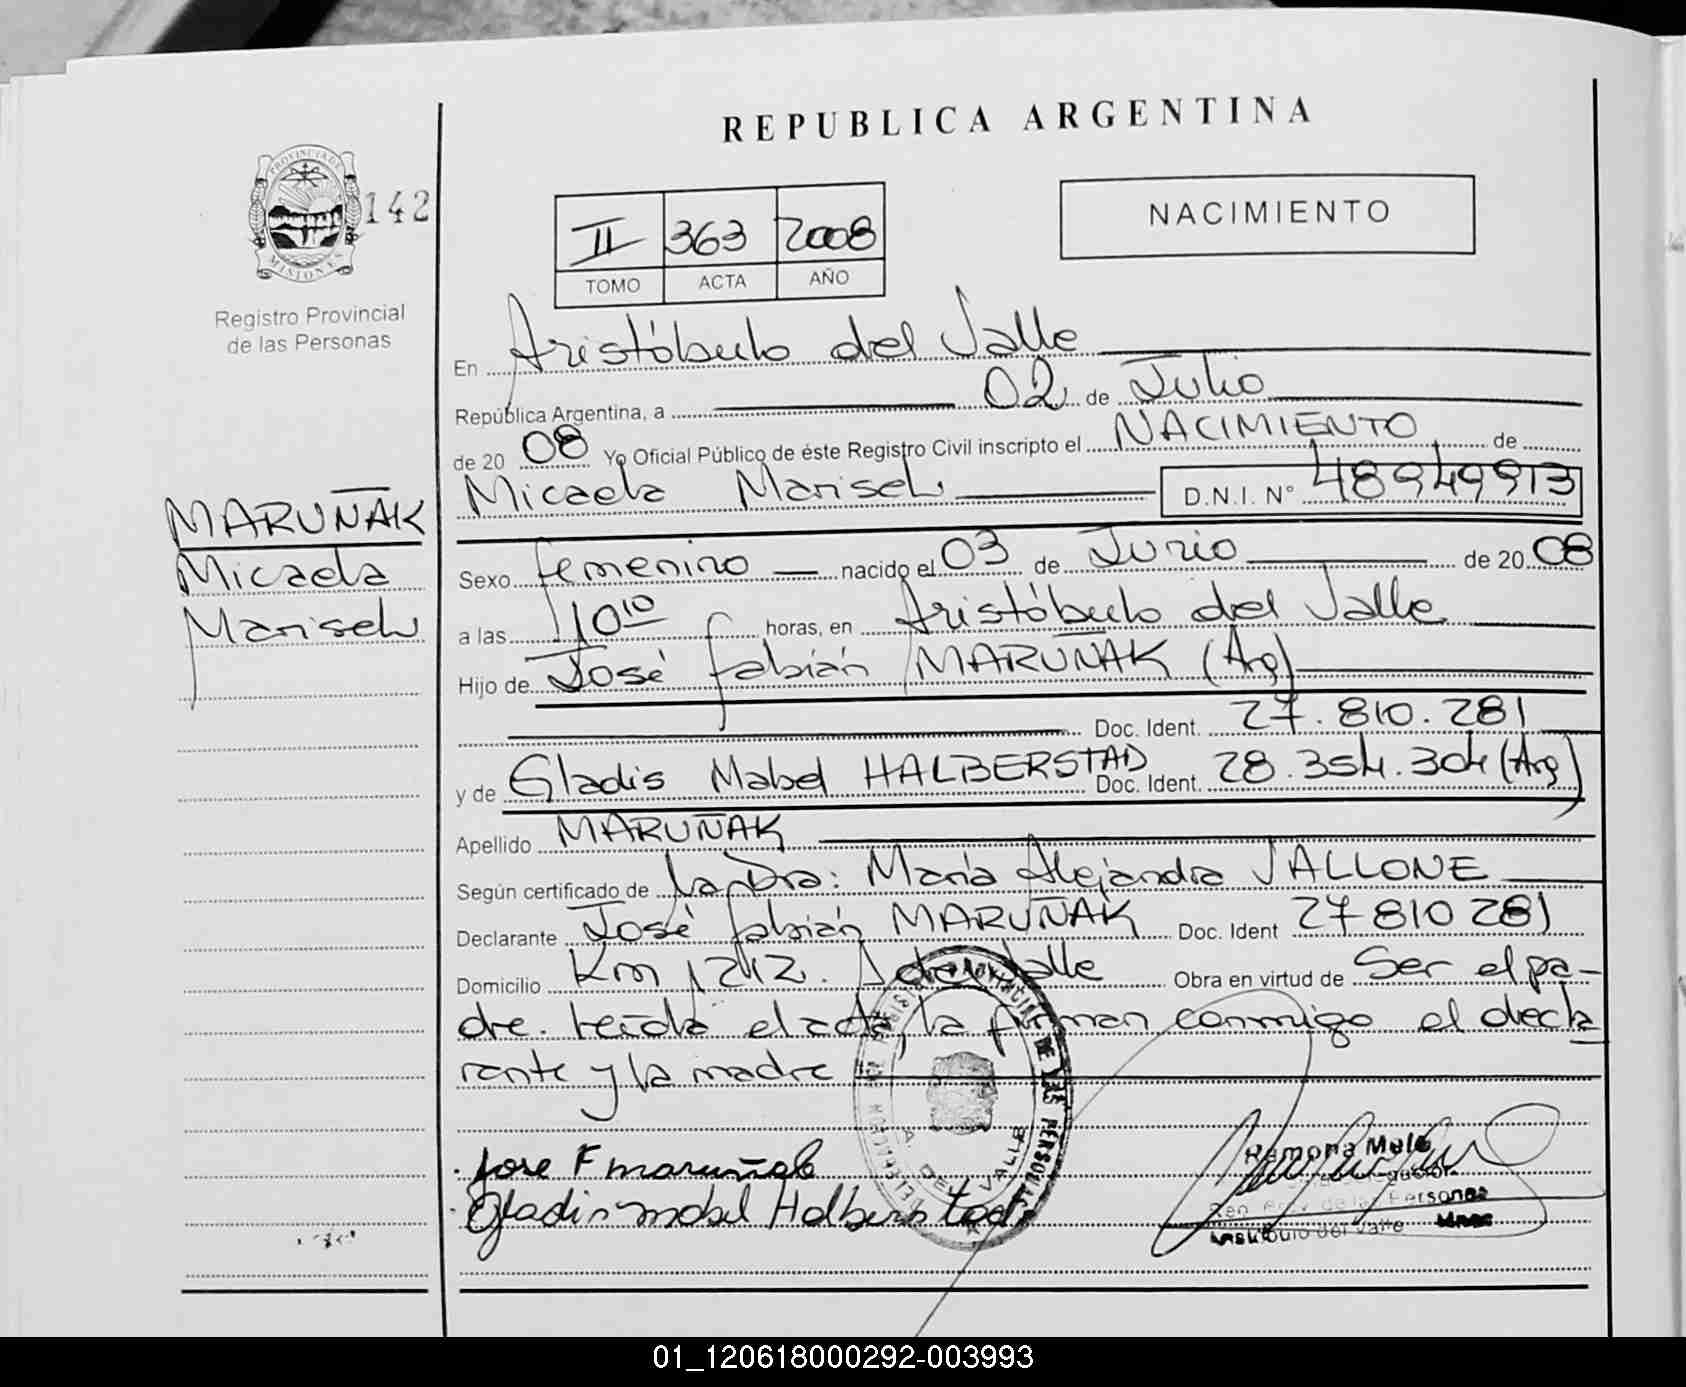 REPUBLICA ARGENTINA
PROVINCIA DE
MISIONES
142
Registro Provincial
de las Personas
II 363 2008
TOMO ACTA AÑO
NACIMIENTO
En Aristóbulo del Valle
República Argentina, a 02 de Julio
de 20 08 Yo Oficial Público de éste Registro Civil inscripto el NACIMIENTO de
Micaela Marisel D.N.I. N° 48949913
MARUÑAK
Micaela
Marisel
Sexo femenino nacido el 03 de Junio de 20 08
a las 10 10 horas, en Aristóbulo del Valle
Hijo de José Fabián MARUÑAK (Arg)
Doc. Ident. 27.810.281
y de Gladis Mabel HALBERSTAD Doc. Ident. 28.354.304 (Arg)
Apellido MARUÑAK
Según certificado de La Dra: María Alejandra VALLONE
Declarante José Fabián MARUÑAK Doc. Ident 27 810 281
Domicilio Km 1242. A del Valle Obra en virtud de Ser el pa-
dre. leída el acta, la firman conmigo el decla
rante y la madre
Jose F maruñak
Gladis mabel Halberstad
REGISTRO PROVINCIAL DE LAS PERSONAS
A. DEL VALLE
Ramona
Reg. Prov. de las Personas
Aristóbulo del Valle
01_120618000292-003993